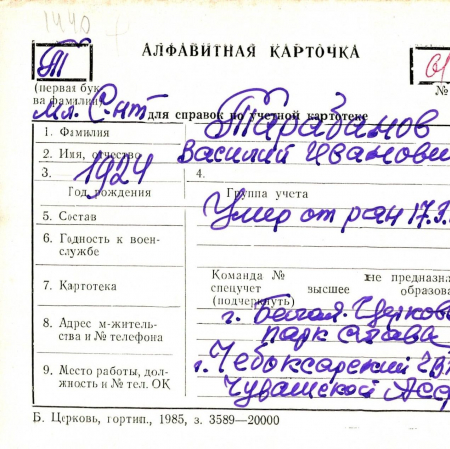 1440
АЛФАВИТНАЯ КАРТОЧКА
Т
(первая бук
ва фамилии)
№
мл. С-нт для справок по учетной картотеке
1. Фамилия Тарабанов
2. Имя, отчество Василий Иванови
3. 1924 4.
Год рождения Группа учета
5. Состав Умер от ран 17.3.
6. Годность к воен-
службе
Команда № не предназна
7. Картотека спецучет высшее образова
(подчеркнуть)
8. Адрес м-житель-
ства и № телефона
г. Белая-Церковь
парк слава
9. Место работы, дол-
жность и № тел. ОК
г. Чебоксарский ГВ
Чувашской АССР
Б. Церковь, гортип., 1985, з. 3589—20000